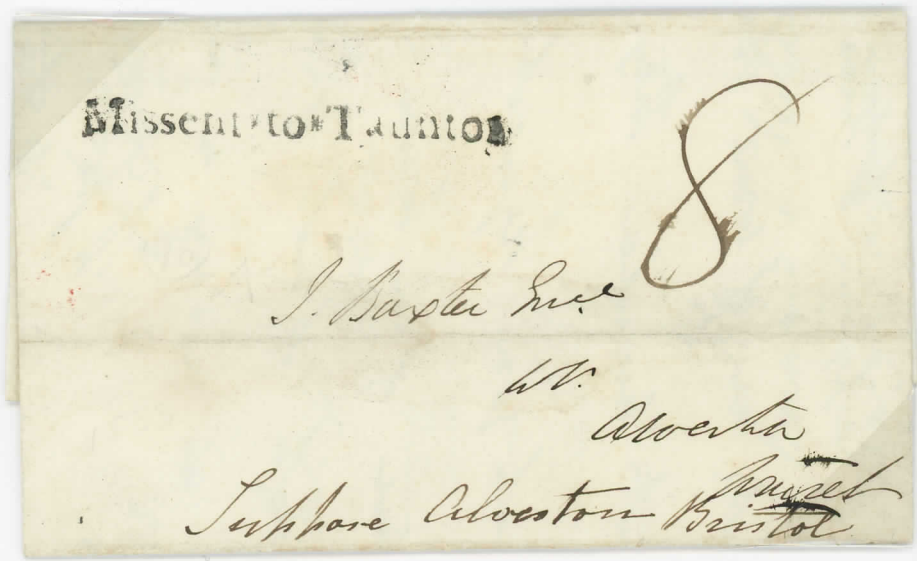 Missent to Taunton
8
J. Baxter
Alveston
Suppose Alveston Bristol